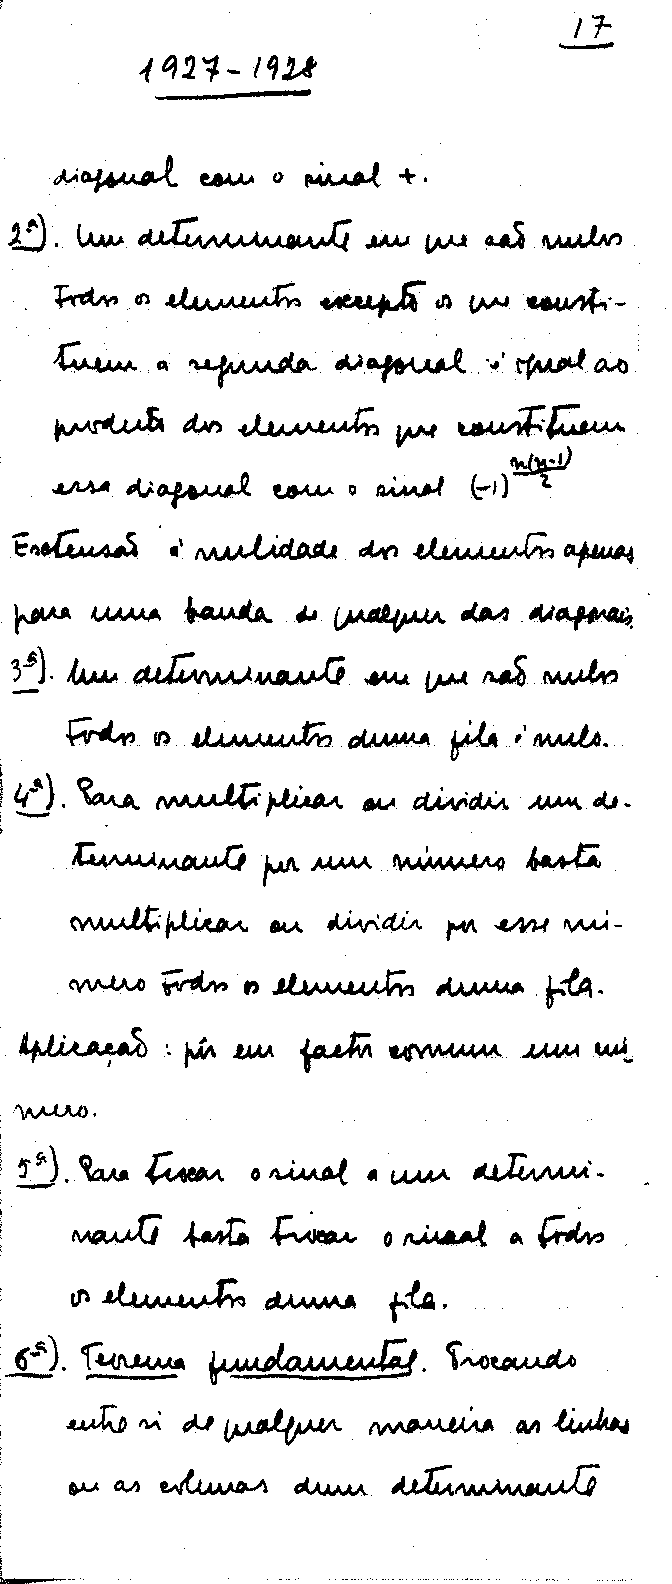 17
1927-1928
diagonal com o sinal +.
2ª). Um determinante em que são nulos
todos os elementos excepto os que consti-
tuem a segunda diagonal é igual ao
produto dos elementos que constituem
essa diagonal com o sinal (-1)^{n(n-1)/2}
Extensão á nulidade dos elementos apenas
para uma banda de qualquer das diagonais.
3ª). Um determinante em que são nulos
todos os elementos duma fila é nulo.
4ª). Para multiplicar ou dividir um de-
terminante por um número basta
multiplicar ou dividir por esse nú-
mero todos os elementos duma fila.
Aplicação: pôr em factor comum um nú-
mero.
5ª). Para trocar o sinal a um determi-
nante basta trocar o sinal a todos
os elementos duma fila.
6ª). Teorema fundamental. Trocando
entre si de qualquer maneira as linhas
ou as colunas dum determinante